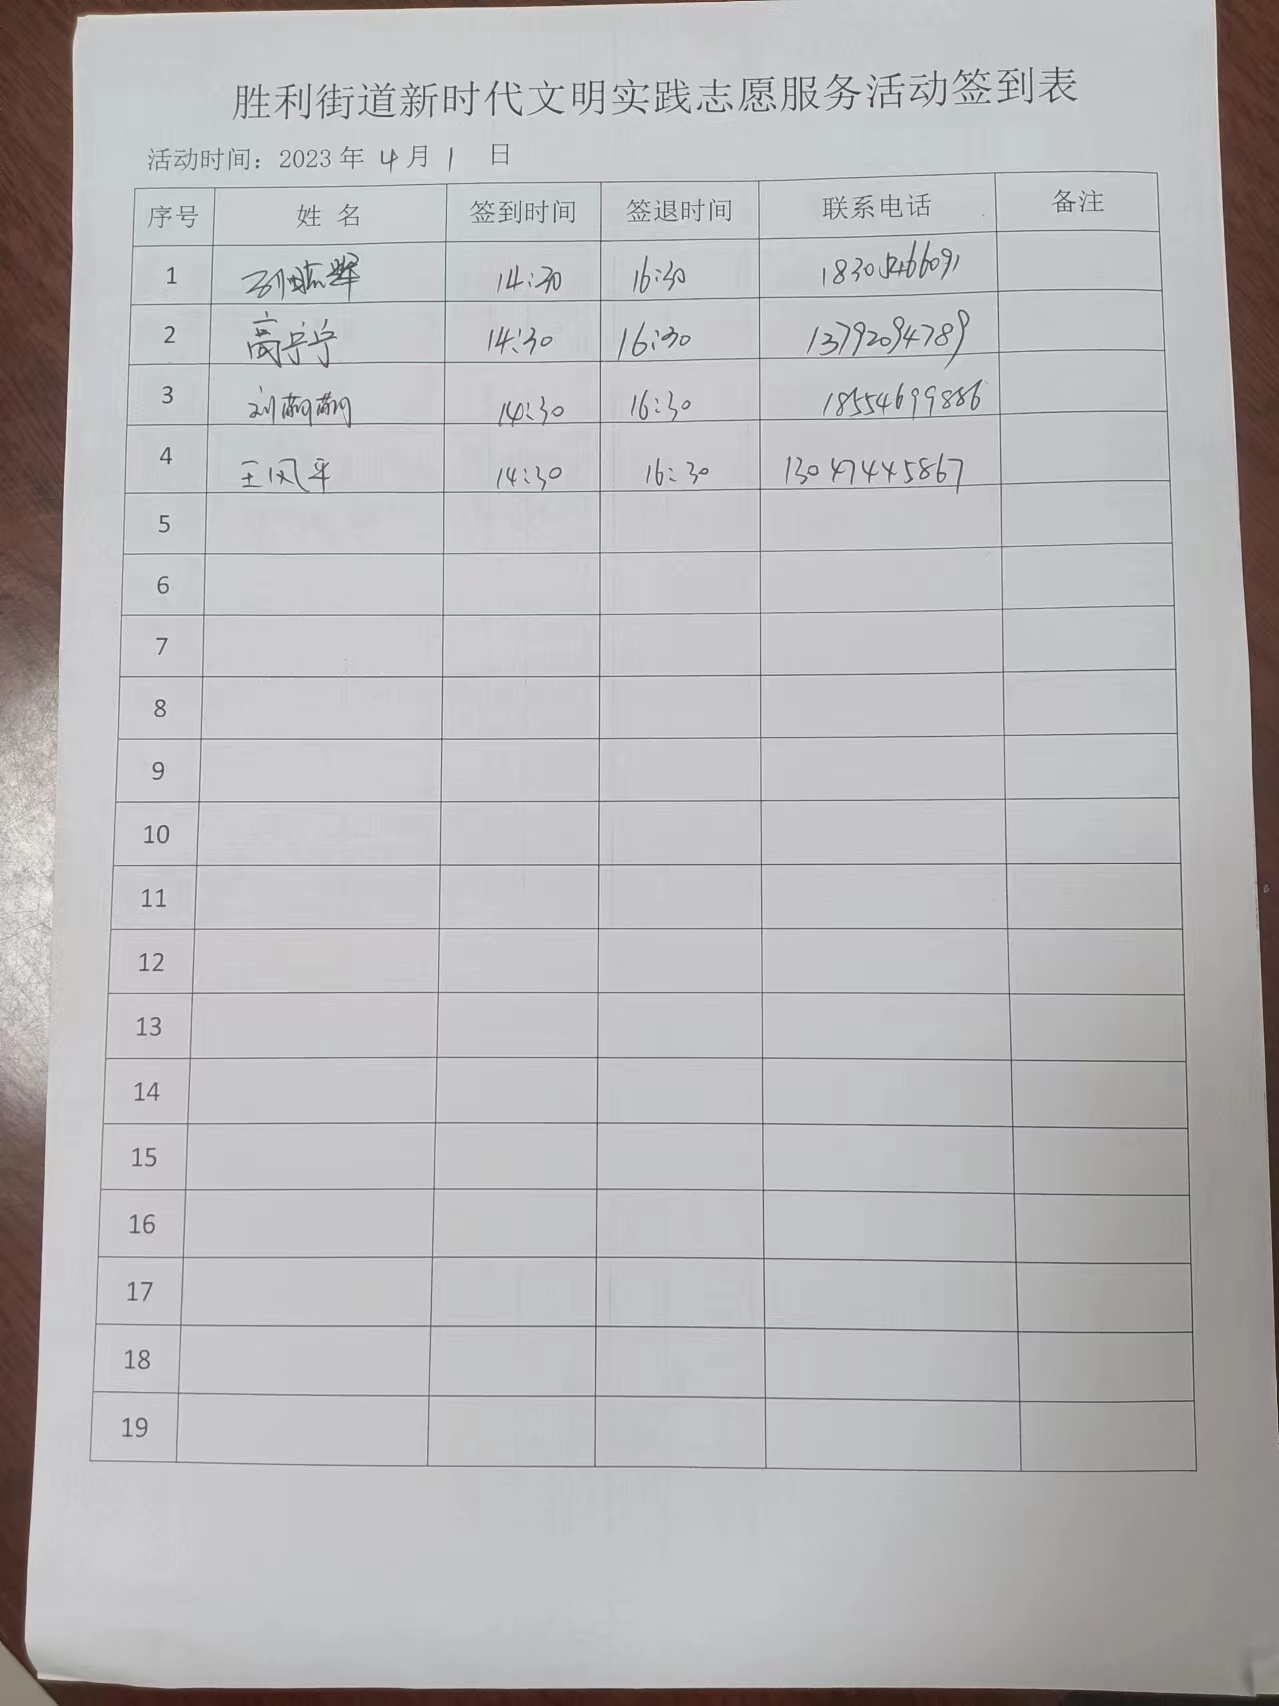 胜利街道新时代文明实践志愿服务活动签到表
活动时间：2023 年 4 月 1 日
序号 姓 名 签到时间 签退时间 联系电话 备注
1 14:30 16:30
2 高宁宁 14:30 16:30 13792094789
3 刘蒴蒴 14:30 16:30 18554699886
4 王凤平 14:30 16:30 13047445867
5
6
7
8
9
10
11
12
13
14
15
16
17
18
19